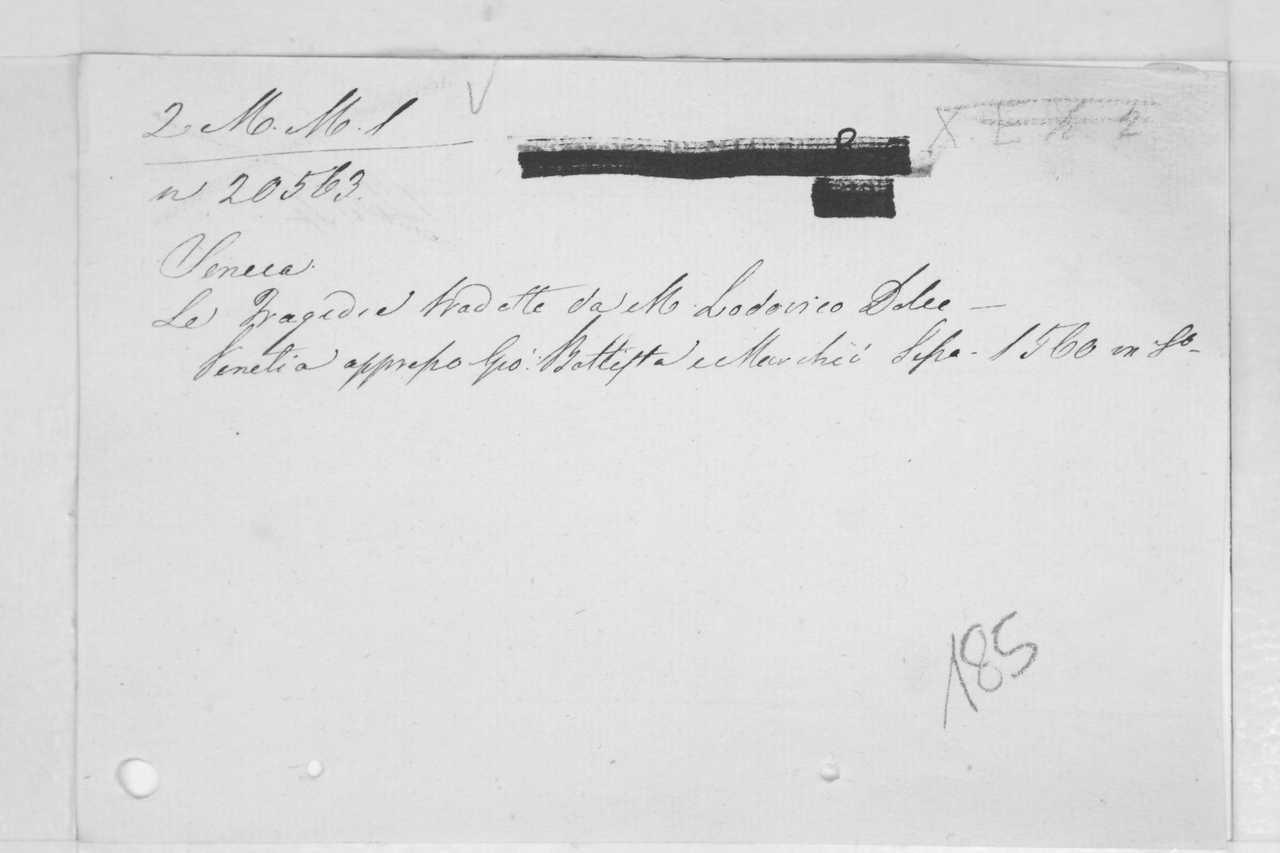 V
2 M. M. 1
X E
n 20563.
Seneca.
Le Tragedie tradotte da M. Lodovico Dolce —
Venetia appresso Gio: Battista e Marchiò Sessa - 1560 in 8o
185